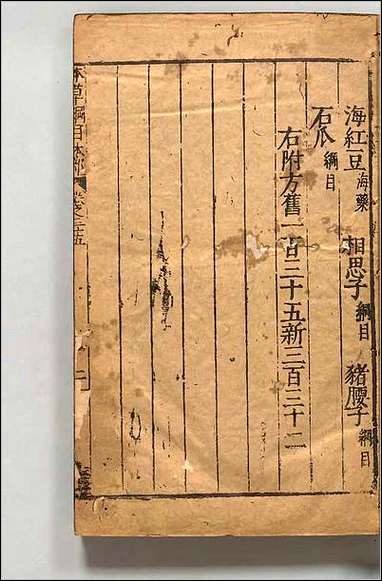 海紅豆 海藥 相思子 綱目 豬腰子 綱目
石瓜 綱目
右附方舊一百三十五新三百三十二
本草綱目木部 卷之三五 二